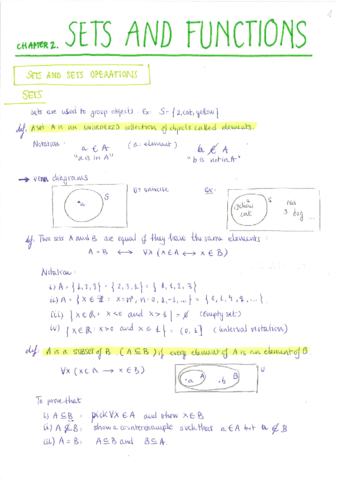 1
CHAPTER 2. SETS AND FUNCTIONS
SETS AND SETS OPERATIONS
SETS
sets are used to group objects. Ex: S={2,cat,yellow}
def: A set A is an unordered collection of objects called elements.
Notation: a ∈ A (a: element) b ∉ A
"a is in A" "b is not in A"
→ venn diagrams U= universe Ex:
S
•a
yellow
cat
S
3 dog ...
def: Two sets A and B are equal if they have the same elements:
A=B ⟷ ∀x (x∈A ⟷ x∈B)
Notation:
i) A = {1,2,3} = {2,3,1} =
ii) A = {x∈ℤ:
iii) {x∈ℝ: x<0 and x>1} = ∅ (Empty set)
iv) {x∈ℝ: x>0 and x≤1} = (0,1] (interval notation)
def: A is a subset of B (A⊆B) if every element of A is an element of B
∀x (x∈A → x∈B)
•a A •b B U
To prove that
i) A⊆B: pick ∀x∈A and show x∈B
ii) A⊈B: show a counterexample such that a∈A but a∉B
iii) A=B: A⊆B and B⊆A.